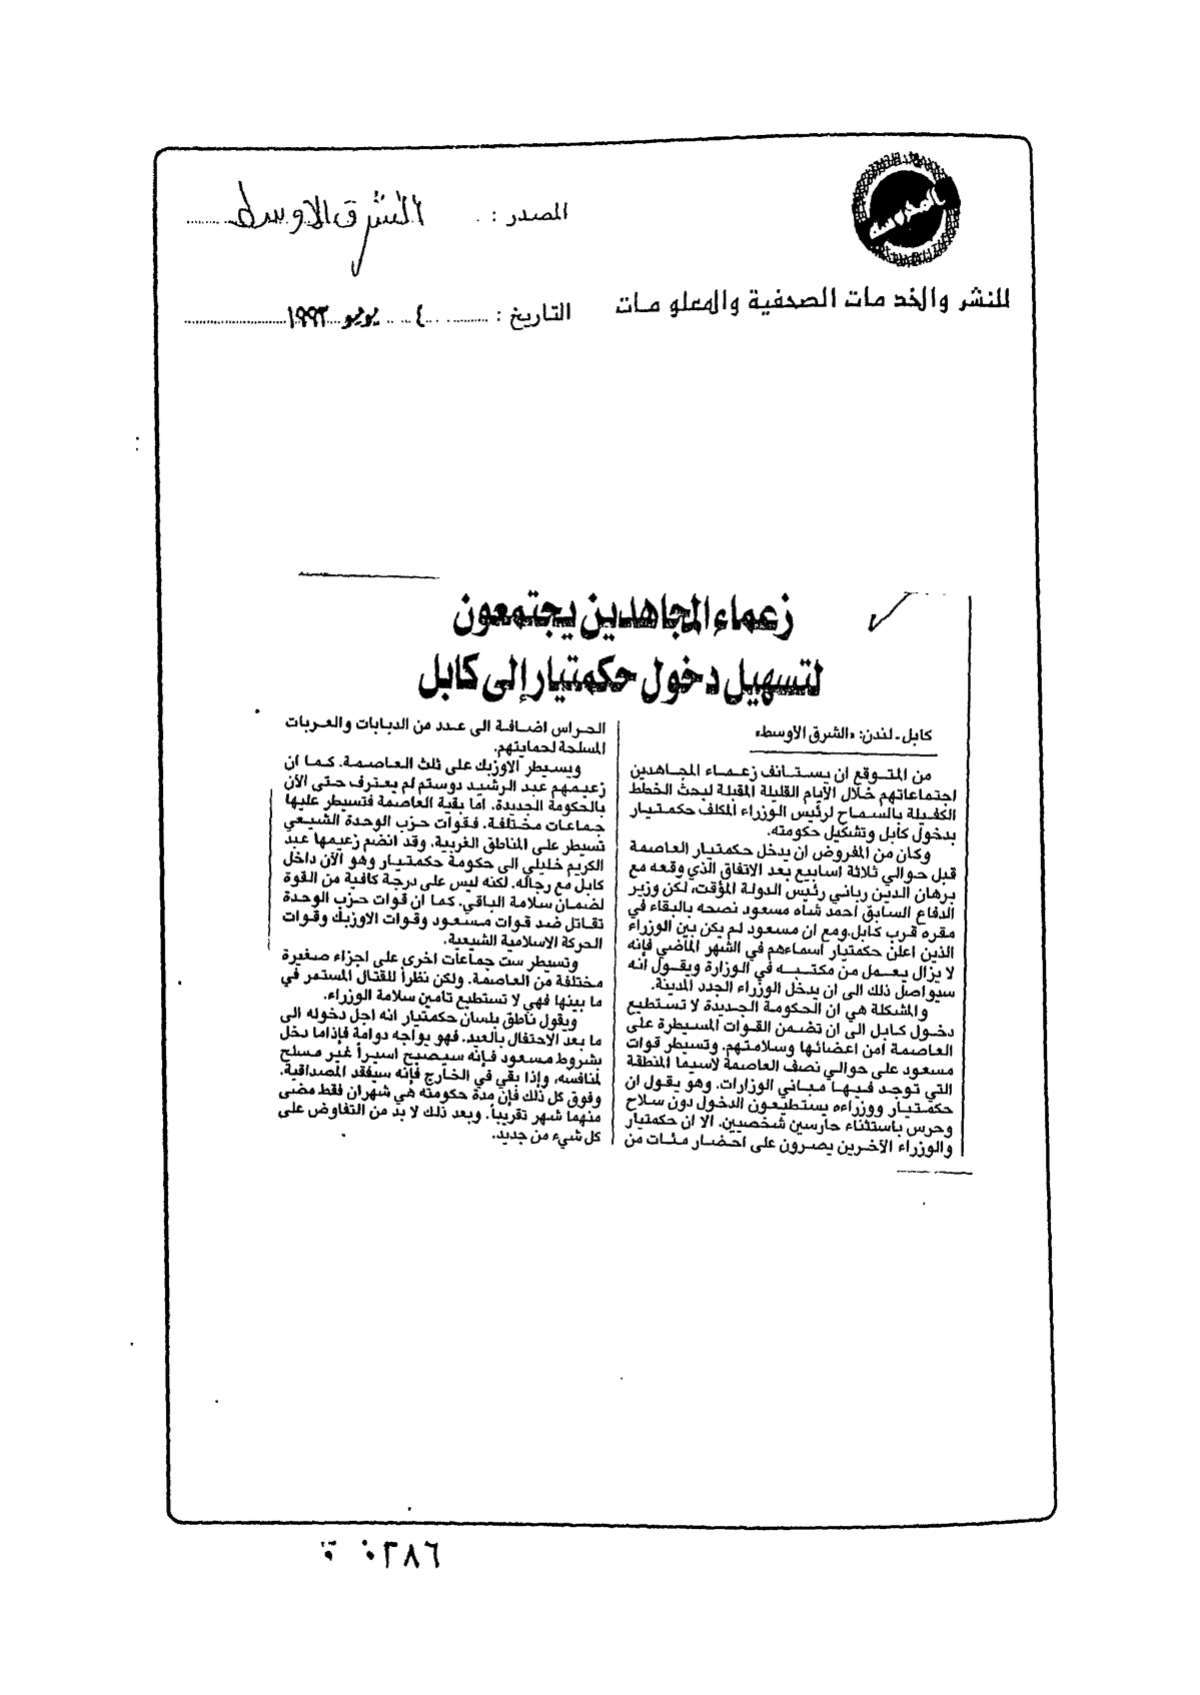 المحروسة
للنشر والخدمات الصحفية والمعلومات
المصدر : الشرق الاوسط
التاريخ : ٤ يونيو ١٩٩٣
زعماء المجاهدين يجتمعون
لتسهيل دخول حكمتيار إلى كابل
كابل ـ لندن: «الشرق الاوسط»
من المتوقع ان يستانف زعماء المجاهدين
اجتماعاتهم خلال الايام القليلة المقبلة لبحث الخطط
الكفيلة بالسماح لرئيس الوزراء المكلف حكمتيار
بدخول كابل وتشكيل حكومته.
وكان من المفروض ان يدخل حكمتيار العاصمة
قبل حوالي ثلاثة اسابيع بعد الاتفاق الذي وقعه مع
برهان الدين رباني رئيس الدولة المؤقت، لكن وزير
الدفاع السابق احمد شاه مسعود نصحه بالبقاء في
مقره قرب كابل.ومع ان مسعود لم يكن بين الوزراء
الذين اعلن حكمتيار اسماءهم في الشهر الماضي فإنه
لا يزال يعمل من مكتبه في الوزارة ويقول انه
سيواصل ذلك الى ان يدخل الوزراء الجدد المدينة.
والمشكلة هي ان الحكومة الجديدة لا تستطيع
دخول كابل الى ان تضمن القوات المسيطرة على
العاصمة امن اعضائها وسلامتهم. وتسيطر قوات
مسعود على حوالي نصف العاصمة لاسيما المنطقة
التي توجد فيها مباني الوزارات. وهو يقول ان
حكمتيار ووزراءه يستطيعون الدخول دون سلاح
وحرس باستثناء حارسين شخصيين. الا ان حكمتيار
والوزراء الآخرين يصرون على احضار مئات من
الحراس اضافة الى عدد من الدبابات والعربات
المسلحة لحمايتهم.
ويسيطر الاوزبك على ثلث العاصمة. كما ان
زعيمهم عبد الرشيد دوستم لم يعترف حتى الآن
بالحكومة الجديدة. اما بقية العاصمة فتسيطر عليها
جماعات مختلفة. فقوات حزب الوحدة الشيعي
تسيطر على المناطق الغربية. وقد انضم زعيمها عبد
الكريم خليلي الى حكومة حكمتيار وهو الآن داخل
كابل مع رجاله. لكنه ليس على درجة كافية من القوة
لضمان سلامة الباقي. كما ان قوات حزب الوحدة
تقاتل ضد قوات مسعود وقوات الاوزبك وقوات
الحركة الاسلامية الشيعية.
وتسيطر ست جماعات اخرى على اجزاء صغيرة
مختلفة من العاصمة. ولكن نظراً للقتال المستمر في
ما بينها فهي لا تستطيع تامين سلامة الوزراء.
ويقول ناطق بلسان حكمتيار انه اجل دخوله الى
ما بعد الاحتفال بالعيد. فهو يواجه دوامة فإذاما دخل
بشروط مسعود فإنه سيصبح اسيراً غير مسلح
لمنافسه، وإذا بقي في الخارج فإنه سيفقد المصداقية.
وفوق كل ذلك فإن مدة حكومته هي شهران فقط مضى
منهما شهر تقريباً. وبعد ذلك لا بد من التفاوض على
كل شيء من جديد.